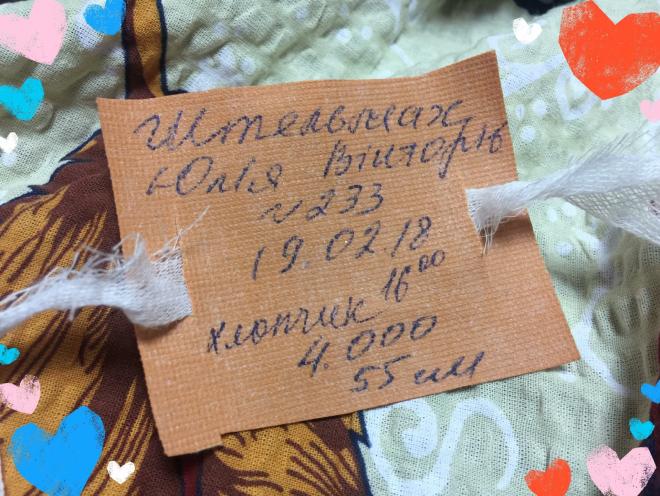 Штельмах
Юлія Вікторів
№ 233
19.02.18
хлопчик 16⁰⁰
4.000
55 см